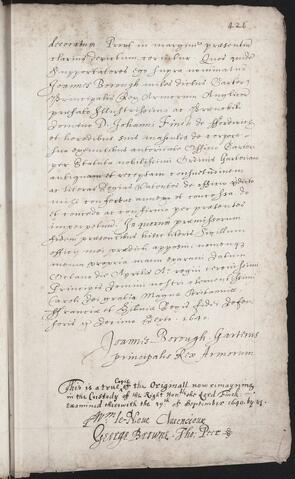 426
decoratum Prout in margine presentiu
clarius depictum cernitur Quos quidē
Supportatores ego supra nominatus
Joannes Borough miles dictus Garter
Principalis Rex Armorum Anglicor
prefato Illustrissimo ac Honorabili
Domino D. Johanni Finch de Fordwich
et heredibus suis masculis de corpore
suo exeuntibus authoritate Officii Garterii
per Statuta nobilissimi Ordinis Garterii
antiquam et receptam consuetudinem
ac literas Regias Patentes de officio predicto
mihi confectas annexo et concessa do
et concedo ac confirmo per presentes
imperpetuum. In quorum premissorum
fidem presentibus hisce literis Sigillum
officii mei predicti apposui nomenq̃
meum propria manu exaravi datum
Decimo die Aprilis Ao regni serenissimi
Principis Domini nostri clementissimi
Caroli Dei gratia Magnæ Britanniæ
Franciæ et Hiberniæ Regis Fidei Defen-
soris &c Decimo Sexto. 1640.
Joannes Borough Garterus
Principalis Rex Armorum.
This is a true Copie of the Originall now remayning
in the Custody of the Right Honble the Lord Finch
Examined therewith the 19th of September 1640. by us.
Wm le Neve Clarenceux
George Browne Tho: Peer